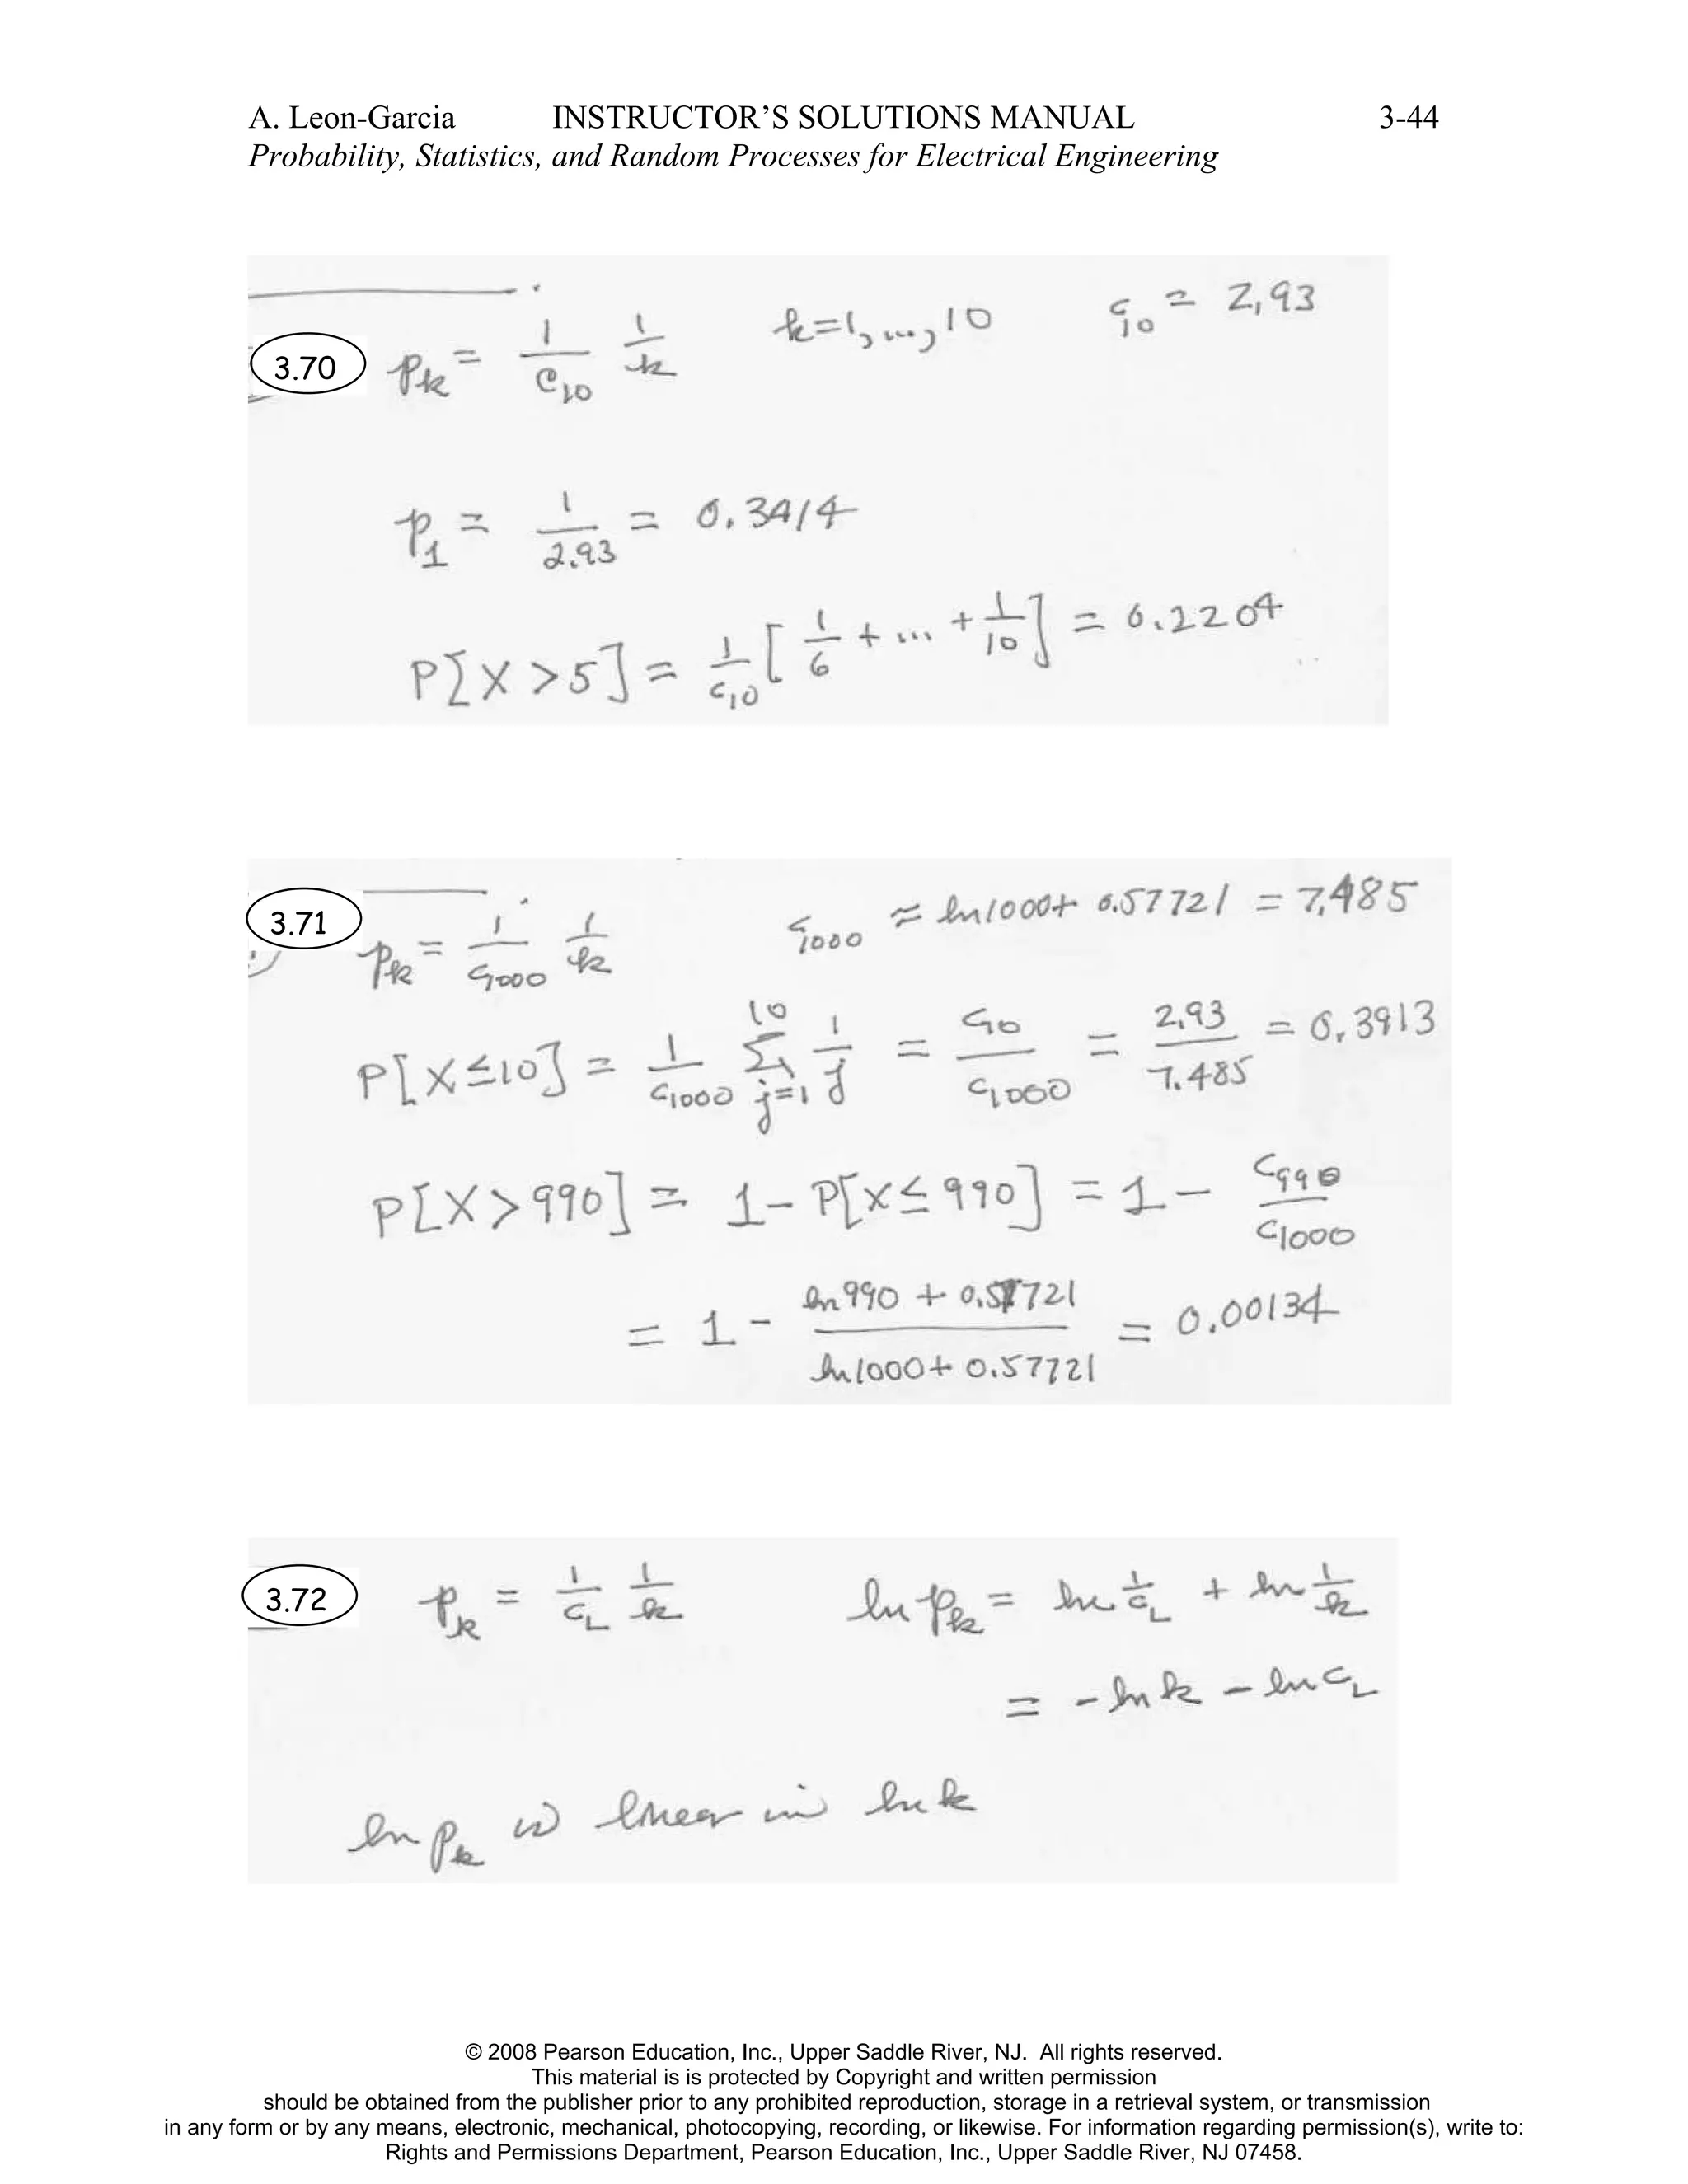 A. Leon-Garcia INSTRUCTOR’S SOLUTIONS MANUAL 3-44
Probability, Statistics, and Random Processes for Electrical Engineering
3.70 p_k = 1/c_10 1/k k=1, ..., 10 c_10 = 2.93
p_1 = 1/2.93 = 0.3414
P[X > 5] = 1/c_10 [1/6 + ... + 1/10] = 0.2204
3.71 p_k = 1/c_1000 1/k c_1000 ≈ ln 1000 + 0.57721 = 7.485
P[X ≤ 10] = 1/c_1000 Σ_{j=1}^{10} 1/j = c_10/c_1000 = 2.93/7.485 = 0.3913
P[X > 990] = 1 - P[X ≤ 990] = 1 - c_990/c_1000
= 1 - (ln 990 + 0.57721)/(ln 1000 + 0.57721) = 0.00134
3.72 p_k = 1/c_L 1/k ln p_k = ln 1/c_L + ln 1/k
= -ln k - ln c_L
ln p_k is linear in ln k
© 2008 Pearson Education, Inc., Upper Saddle River, NJ. All rights reserved.
This material is is protected by Copyright and written permission
should be obtained from the publisher prior to any prohibited reproduction, storage in a retrieval system, or transmission
in any form or by any means, electronic, mechanical, photocopying, recording, or likewise. For information regarding permission(s), write to:
Rights and Permissions Department, Pearson Education, Inc., Upper Saddle River, NJ 07458.